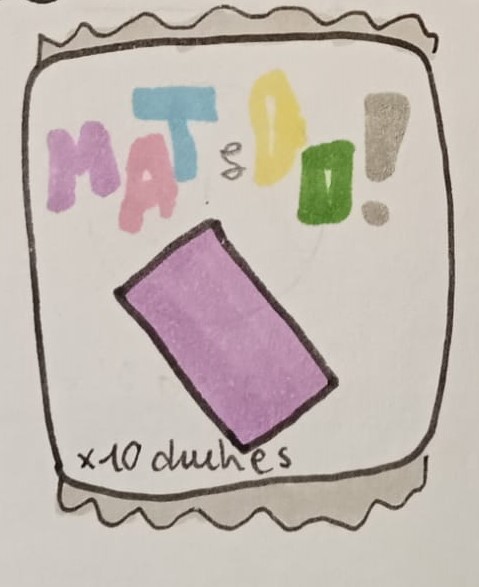 MATsDO!
x10 duches